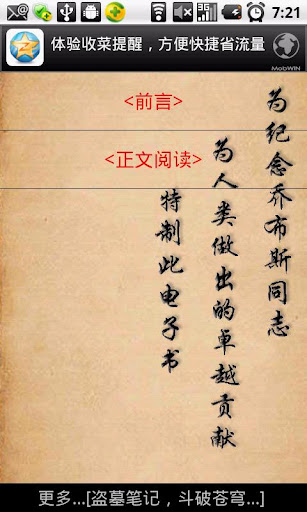 7:21
体验收菜提醒，方便快捷省流量
MobWIN
<前言>
<正文阅读>
为纪念乔布斯同志
为人类做出的卓越贡献
特制此电子书
更多...[盗墓笔记，斗破苍穹...]